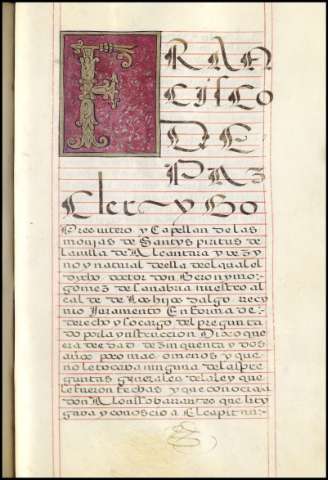 FRAN
CISCO
DE
PAZ
Clerygo
Presvitero y Capellan de las
monjas de Santyspiritus de
la villa de Alcantara y vezy
no y natural della del qual el
dycho doctor don Geronymo
gomez de sanabria nuestro al
cal de de los hijos dalgo recy
vio Juramento En forma de
derecho y so cargo del pregunta
do por la ynstrucion Dixo que
era de edad de zinquenta y dos
años poco mas o menos y que
no le toca va ninguna de las pre
guntas generales de la ley que
le fueron fechas y que conocia a
don Alonsso barrantes que lity
gava y conoscio a El capitan